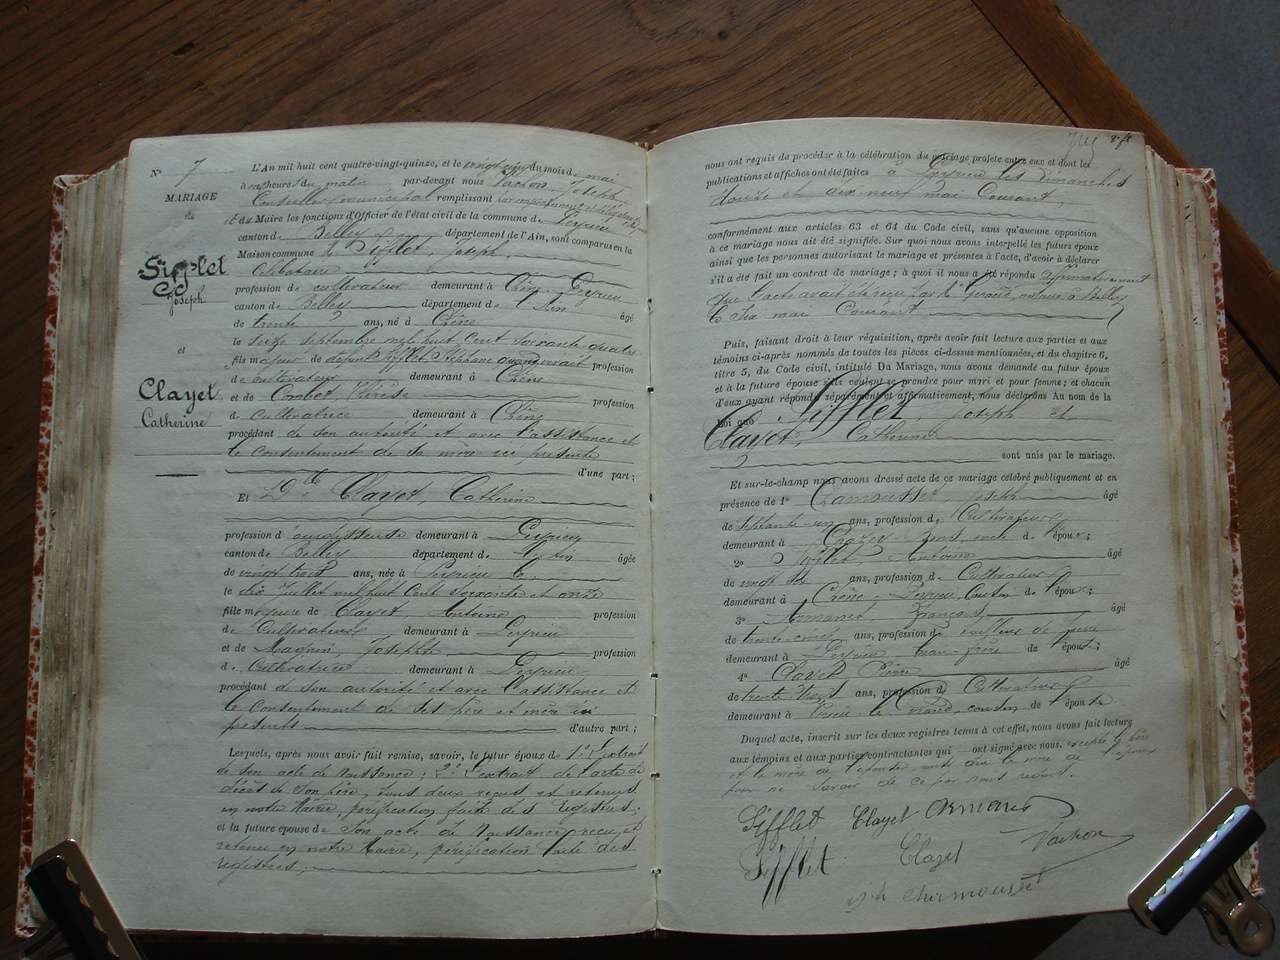 N° 7
MARIAGE
de
Sifflet
Joseph
et
Clayet
Catherine
L'An mil huit cent quatre-vingt-quinze, et le du mois d mai
à heures du matin par-devant nous Vachon Joseph
Conseiller municipal remplissant
du Maire les fonctions d'Officier de l'état civil de la commune d Peyrieu
canton d Belley département de l'Ain, sont comparus en la
Maison commune Sifflet, Joseph,
Célibataire
profession de cultivateur demeurant à Peyrieu
canton d Belley département d l'Ain âgé
de trente ans, né à
le Seize Septembre mil huit Cent Soixante quatre
fils majeur de défunt Sifflet Stéphane quand vivait profession
de cultivateur demeurant à
et de Thérèse profession
d Cultivatrice demeurant à
procédant de son autorité et avec l'assistance et
le Consentement de sa mère ici présente
d'une part;
Et Dlle Clayet, Catherine
profession d demeurant à Peyrieu
canton d Belley département d l'Ain âgée
de vingt trois ans, née à Peyrieu le
dix Juillet mil huit Cent Soixante et onze
fille majeure de Clayet, Antoine profession
de Cultivateur demeurant à Peyrieu
et de Magnin, Josephte profession
d Cultivatrice demeurant à Peyrieu
procédant de son autorité et avec l'assistance et
le Consentement de ses père et mère ici
présents d'autre part;
Lesquels, après nous avoir fait remise, savoir, le futur époux de 1° l'Extrait
de son acte de Naissance; 2° l'extrait de l'acte de
décès de Son père, tous deux reçus et retenus
en notre Mairie, vérification faite des registres;
et la future épouse de Son acte de Naissance reçu et
retenu en notre Mairie, vérification faite des
registres,
nous ont requis de procéder à la célébration du mariage projeté entre eux et dont les
publications et affiches ont été faites à Peyrieu les dimanches
douze et dix neuf mai Courant,
conformément aux articles 63 et 64 du Code civil, sans qu'aucune opposition
à ce mariage nous ait été signifiée. Sur quoi nous avons interpellé les futurs époux
ainsi que les personnes autorisant le mariage et présentes à l'acte, d'avoir à déclarer
s'il a été fait un contrat de mariage; à quoi il nous a été répondu affirmativement
que l'acte avait été reçu par Me notaire à Belley
le Six mai Courant
Puis, faisant droit à leur réquisition, après avoir fait lecture aux parties et aux
témoins ci-après nommés de toutes les pièces ci-dessus mentionnées, et du chapitre 6,
titre 5, du Code civil, intitulé Du Mariage, nous avons demandé au futur époux
et à la future épouse s'ils veulent se prendre pour mari et pour femme; et chacun
d'eux ayant répondu séparément et affirmativement, nous déclarons Au nom de la
Loi que Sifflet, Joseph et
Clayet, Catherine
sont unis par le mariage.
Et sur-le-champ nous avons dressé acte de ce mariage célébré publiquement et en
présence de 1° Joseph âgé
de Septante-un ans, profession d Cultivateur
demeurant à d l'époux;
2° Sifflet, Antoine âgé
de vingt ans, profession d Cultivateur
demeurant à Peyrieu, Cousin de l'époux;
3° Armanet, François âgé
de trente-cinq ans, profession d tailleur de pierre
demeurant à Peyrieu beau-frère de l'époux;
4° Clayet Pierre âgé
de trente ans, profession d Cultivateur
demeurant à cousin de l'épouse
Duquel acte, inscrit sur les deux registres tenus à cet effet, nous avons fait lecture
aux témoins et aux parties contractantes qui ont signé avec nous, excepté le père
et la mère de l'épouse ainsi que la mère de l'époux
pour ne savoir de ce par nous requis.
Sifflet Clayet Armanet
Sifflet Clayet Vachon